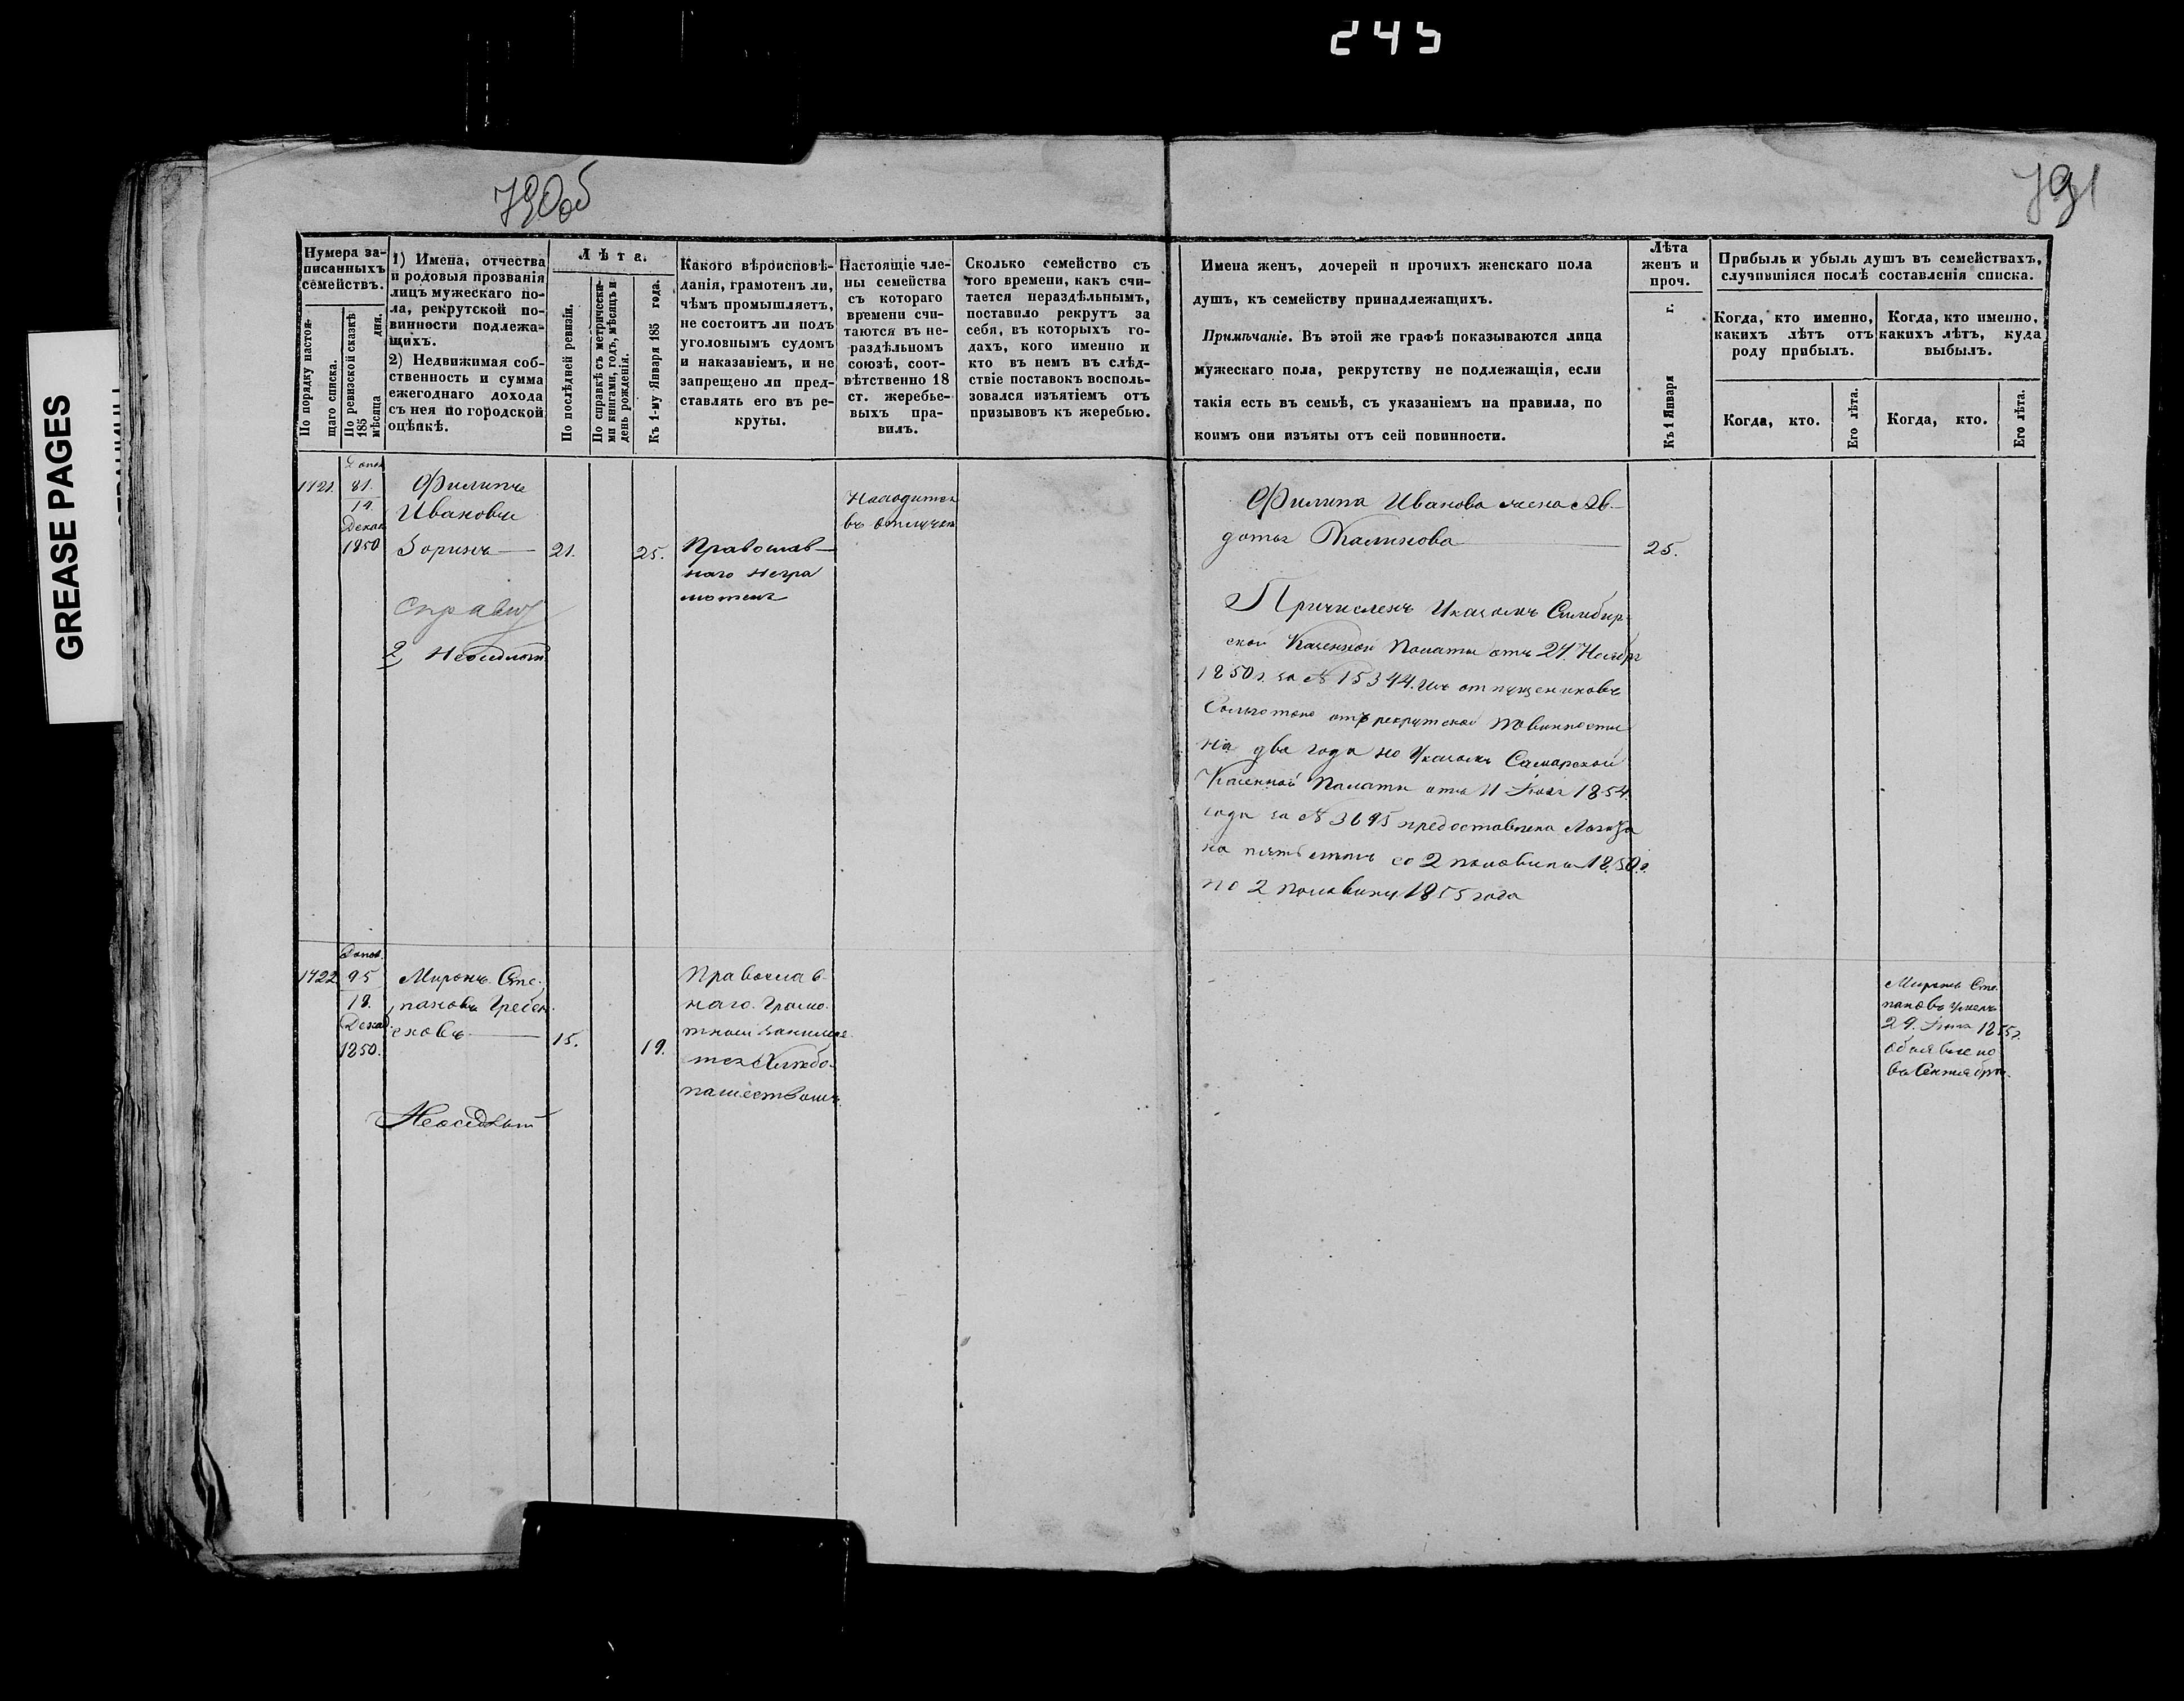 245
GREASE PAGES
790об
791
Нумера за-
писанныхъ
семействъ.
По порядку настоя-
щаго списка.
По ревизской сказкѣ
185 мѣсяца дня.
1) Имена, отчества
и родовыя прозванія
лицъ мужескаго по-
ла, рекрутской по-
винности подлежа-
щихъ.
2) Недвижимая соб-
ственность и сумма
ежегоднаго дохода
съ нея по городской
оцѣнкѣ.
Лѣта.
По послѣдней ревизіи.
По справкѣ съ метрически-
ми книгами, годъ, мѣсяцъ и
день рожденія.
Къ 1-му Января 185 года.
Какого вѣроисповѣ-
данія, грамотенъ ли,
чѣмъ промышляетъ,
не состоитъ ли подъ
уголовнымъ судомъ
и наказаніемъ, и не
запрещено ли пред-
ставлять его въ ре-
круты.
Настоящіе чле-
ны семейства
съ котораго
времени счи-
таются въ не-
раздѣльномъ
союзѣ, соот-
вѣтственно 18
ст. жеребье-
выхъ пра-
вилъ.
Сколько семейство съ
того времени, какъ счи-
тается нераздѣльнымъ,
поставило рекрутъ за
себя, въ которыхъ го-
дахъ, кого именно и
кто въ немъ въ слѣд-
ствіе поставокъ восполь-
зовался изъятіемъ отъ
призывовъ къ жеребью.
Имена женъ, дочерей и прочихъ женскаго пола
душъ, къ семейству принадлежащихъ.
Примѣчаніе. Въ этой же графѣ показываются лица
мужескаго пола, рекрутству не подлежащія, если
такія есть въ семьѣ, съ указаніемъ на правила, по
коимъ они изъяты отъ сей повинности.
Лѣта
женъ и
проч.
Къ 1 Января г.
Прибыль и убыль душъ въ семействахъ,
случившіяся послѣ составленія списка.
Когда, кто именно,
какихъ лѣтъ отъ
роду прибылъ.
Когда, кто именно,
какихъ лѣтъ, куда
выбылъ.
Когда, кто.
Его лѣта.
Когда, кто.
Его лѣта.
1721.
Допол
81.
19
Декаб
1850
Филипъ
Ивановъ
Зоринъ
21.
25.
Православ-
наго негра
мотенъ
Находится
въ отлучкѣ
2, Неосѣдлый
Филипа Иванова жена Ав-
дотья Калинова
25.
Причисленъ Указомъ Симбир-
ской Казенной Палаты отъ 24 Ноября
1850 г. за № 15344. изъ отпущениковъ
Сольготою отъ рекрутской повинности
на два года но Указомъ Самарской
Казенной Палаты отъ 11 1854
года за № 3695 предоставлена льгота
на пять лѣтъ со 2 половины 1850 г.
по 2 половину 1855 года
1722
Допол.
95
18.
Декаб
1850.
Миронъ Сте-
пановъ Гребен-
сковъ
15.
19.
Православ-
наго. Грамо-
тной занимае
тся Хлѣбо-
пашествомъ.
Неосѣдлый
Миронъ Сте-
пановъ умеръ
29. 1855 г.
объявлено
въ Сентябрѣ.